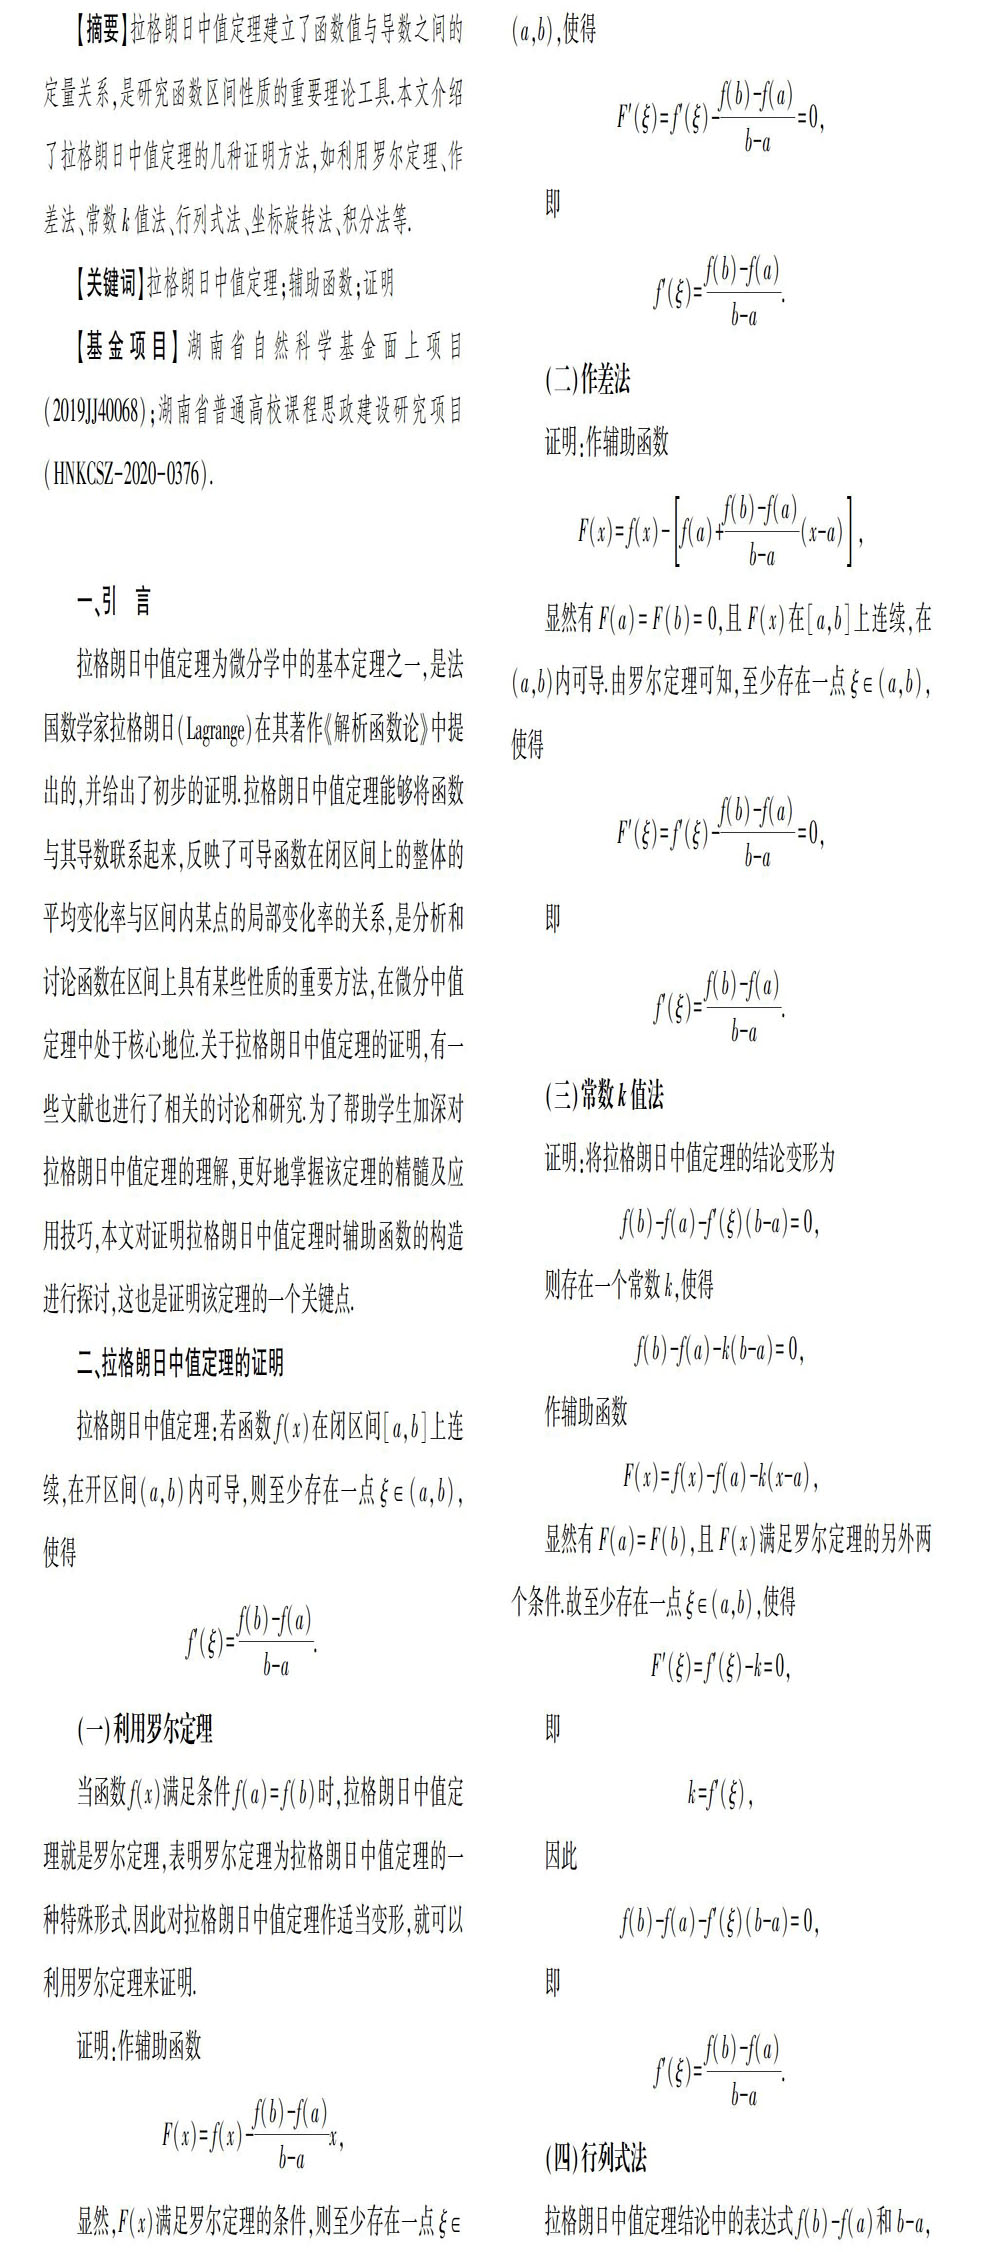 【摘要】拉格朗日中值定理建立了函数值与导数之间的
定量关系,是研究函数区间性质的重要理论工具.本文介绍
了拉格朗日中值定理的几种证明方法,如利用罗尔定理、作
差法、常数 k 值法、行列式法、坐标旋转法、积分法等.
【关键词】拉格朗日中值定理;辅助函数;证明
【基金项目】湖南省自然科学基金面上项目
(2019JJ40068);湖南省普通高校课程思政建设研究项目
(HNKCSZ-2020-0376).
一、引 言
拉格朗日中值定理为微分学中的基本定理之一,是法
国数学家拉格朗日(Lagrange)在其著作《解析函数论》中提
出的,并给出了初步的证明.拉格朗日中值定理能够将函数
与其导数联系起来,反映了可导函数在闭区间上的整体的
平均变化率与区间内某点的局部变化率的关系,是分析和
讨论函数在区间上具有某些性质的重要方法,在微分中值
定理中处于核心地位.关于拉格朗日中值定理的证明,有一
些文献也进行了相关的讨论和研究.为了帮助学生加深对
拉格朗日中值定理的理解,更好地掌握该定理的精髓及应
用技巧,本文对证明拉格朗日中值定理时辅助函数的构造
进行探讨,这也是证明该定理的一个关键点.
二、拉格朗日中值定理的证明
拉格朗日中值定理:若函数 f(x)在闭区间[a,b]上连
续,在开区间(a,b)内可导,则至少存在一点 ξ∈(a,b),
使得
f′(ξ)=\frac{f(b)-f(a)}{b-a}.
(一)利用罗尔定理
当函数 f(x)满足条件 f(a)=f(b)时,拉格朗日中值定
理就是罗尔定理,表明罗尔定理为拉格朗日中值定理的一
种特殊形式.因此对拉格朗日中值定理作适当变形,就可以
利用罗尔定理来证明.
证明:作辅助函数
F(x)=f(x)-\frac{f(b)-f(a)}{b-a}x,
显然,F(x)满足罗尔定理的条件,则至少存在一点 ξ∈
(a,b),使得
F′(ξ)=f′(ξ)-\frac{f(b)-f(a)}{b-a}=0,
即
f′(ξ)=\frac{f(b)-f(a)}{b-a}.
(二)作差法
证明:作辅助函数
F(x)=f(x)-[f(a)+\frac{f(b)-f(a)}{b-a}(x-a)],
显然有 F(a)=F(b)=0,且 F(x)在[a,b]上连续,在
(a,b)内可导.由罗尔定理可知,至少存在一点 ξ∈(a,b),
使得
F′(ξ)=f′(ξ)-\frac{f(b)-f(a)}{b-a}=0,
即
f′(ξ)=\frac{f(b)-f(a)}{b-a}.
(三)常数 k 值法
证明:将拉格朗日中值定理的结论变形为
f(b)-f(a)-f′(ξ)(b-a)=0,
则存在一个常数 k,使得
f(b)-f(a)-k(b-a)=0,
作辅助函数
F(x)=f(x)-f(a)-k(x-a),
显然有 F(a)=F(b),且 F(x)满足罗尔定理的另外两
个条件.故至少存在一点 ξ∈(a,b),使得
F′(ξ)=f′(ξ)-k=0,
即
k=f′(ξ),
因此
f(b)-f(a)-f′(ξ)(b-a)=0,
即
f′(ξ)=\frac{f(b)-f(a)}{b-a}.
(四)行列式法
拉格朗日中值定理结论中的表达式 f(b)-f(a)和 b-a,